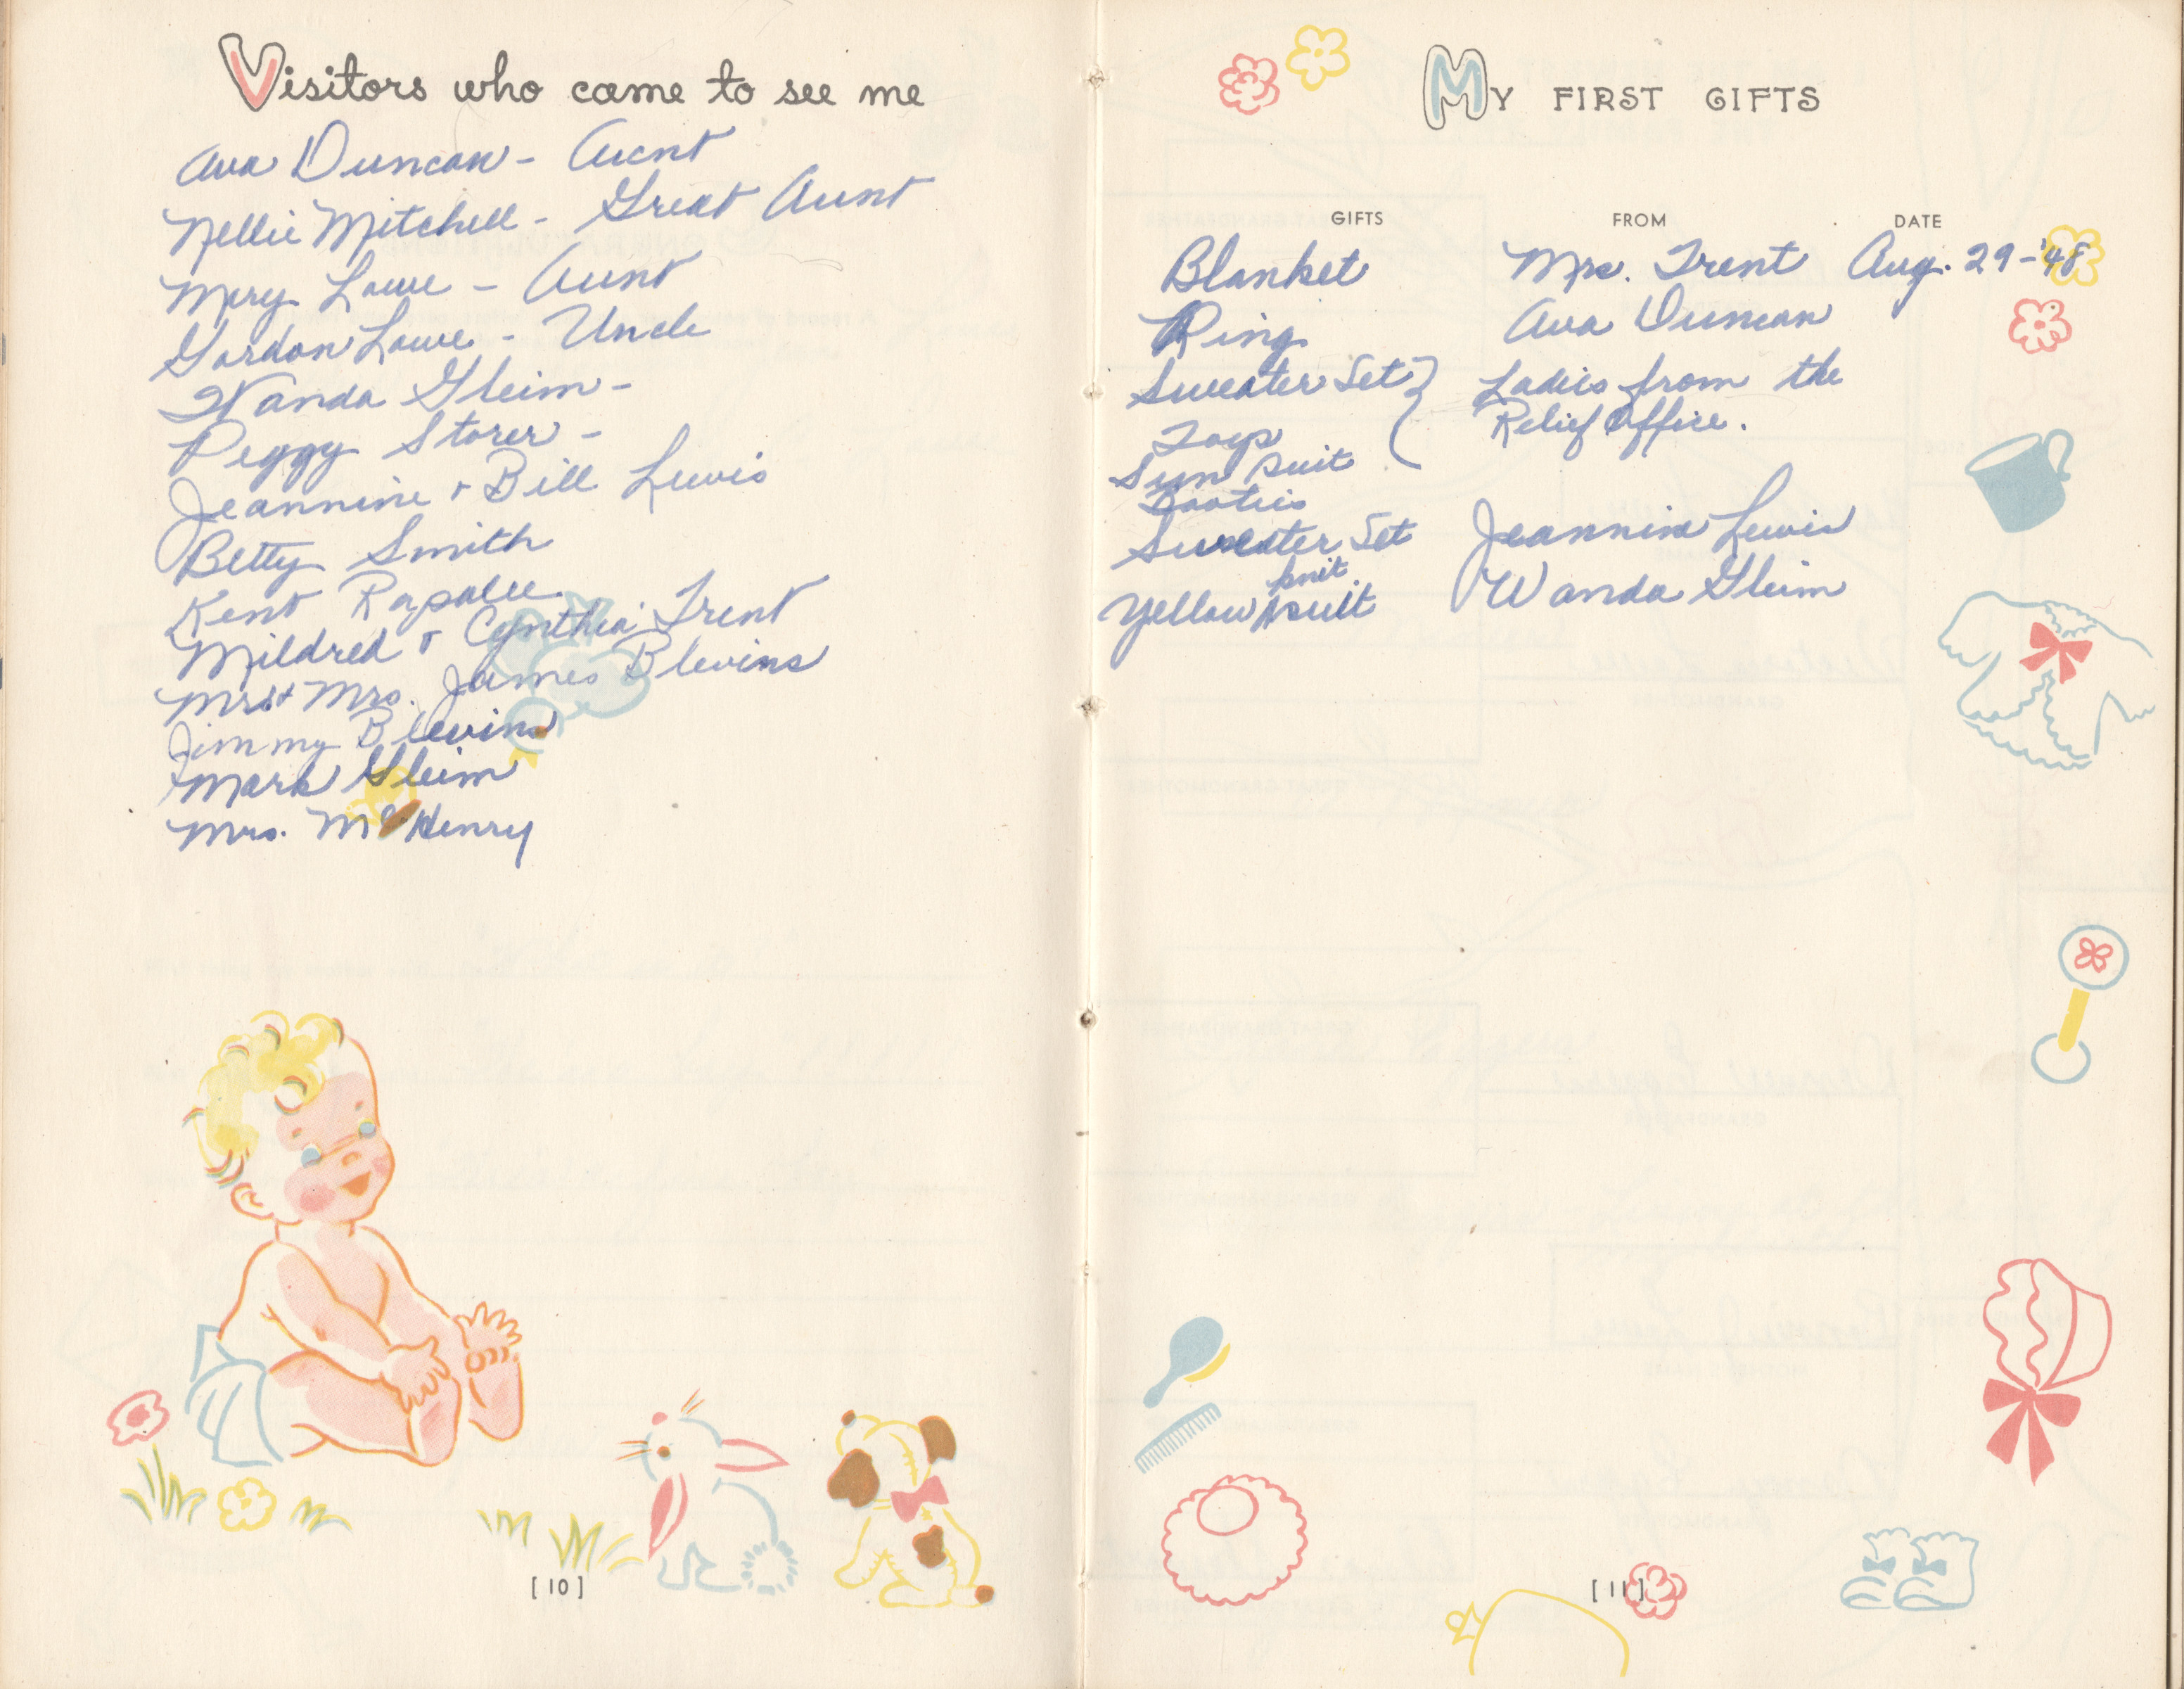 Visitors who came to see me
Ava Duncan - Aunt
Nellie Mitchell - Great Aunt
Mary Lowe - Aunt
Gordon Lowe - Uncle
Wanda Gleim -
Peggy Storer -
Jeannine + Bill Lewis
Betty Smith
Kent Rapalee
Mildred + Cynthia Trent
Mr & Mrs. James Blevins
Jimmy Blevins
Mark Gleim
Mrs. McHenry
[10]
MY FIRST GIFTS
GIFTS FROM DATE
Blanket Mrs. Trent Aug. 29-'48
Ring Ava Duncan
Sweater Set } Ladies from the
Toys Relief Office.
Sun Suit
Booties
Sweater Set Jeannine Lewis
Yellow knit suit Wanda Gleim
[11]